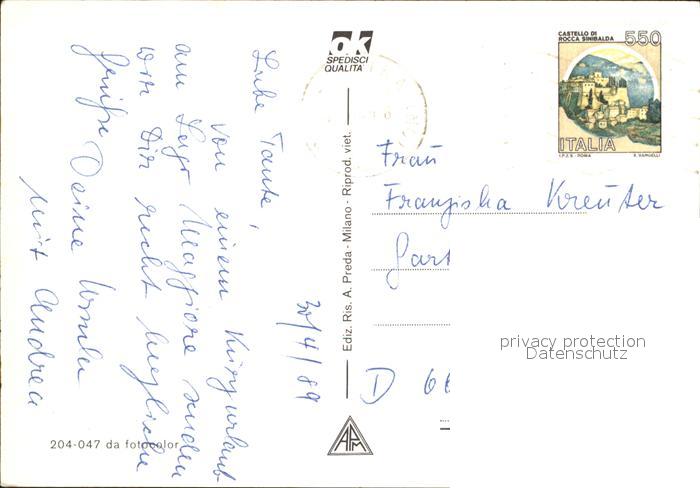 Liebe Tante!
Von einem Kurzurlaub
am Lago Maggiore senden
wir Dir recht herzliche
Grüße Deine Ursula
mit Andrea
30/4/89
ok
SPEDISCI
QUALITÀ
Ediz. Ris. A. Preda - Milano - Riprod. viet.
APM
204-047 da fotocolor
CASTELLO DI
ROCCA SINIBALDA
550
ITALIA
I.P.Z.S. - ROMA E. VANGELLI
Frau
Franziska Kreuter
Gart
D 66
privacy protection
Datenschutz